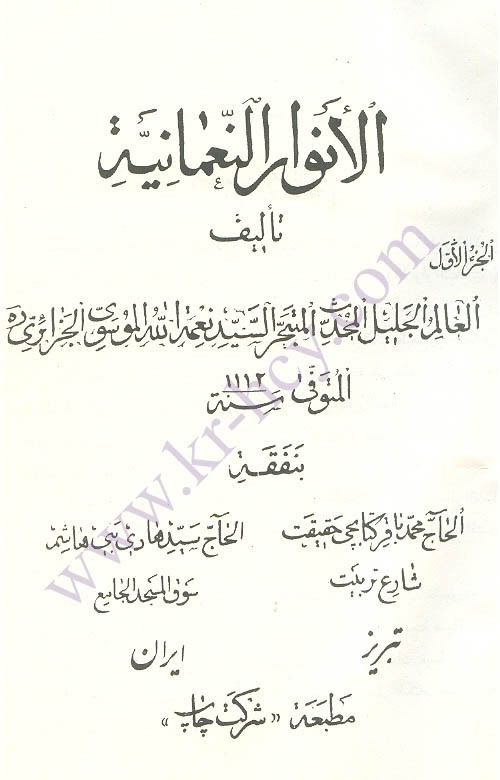 الأنوار النّعمانيّة
تأليف
الجزء الأوّل
العالم الجليل المحدّث المتبحّر السيّد نعمة الله الموسوي الجزائري ره
المتوفى سنة ١١١٢
بنفقة
الحاجّ محمّد باقر كتابچی حقيقت
الحاجّ سيّد هادي بني هاشم
شارع تربيت
سوق المسجد الجامع
تبريز
ايران
مطبعة «شركت چاپ»
www.kr-hcy.com